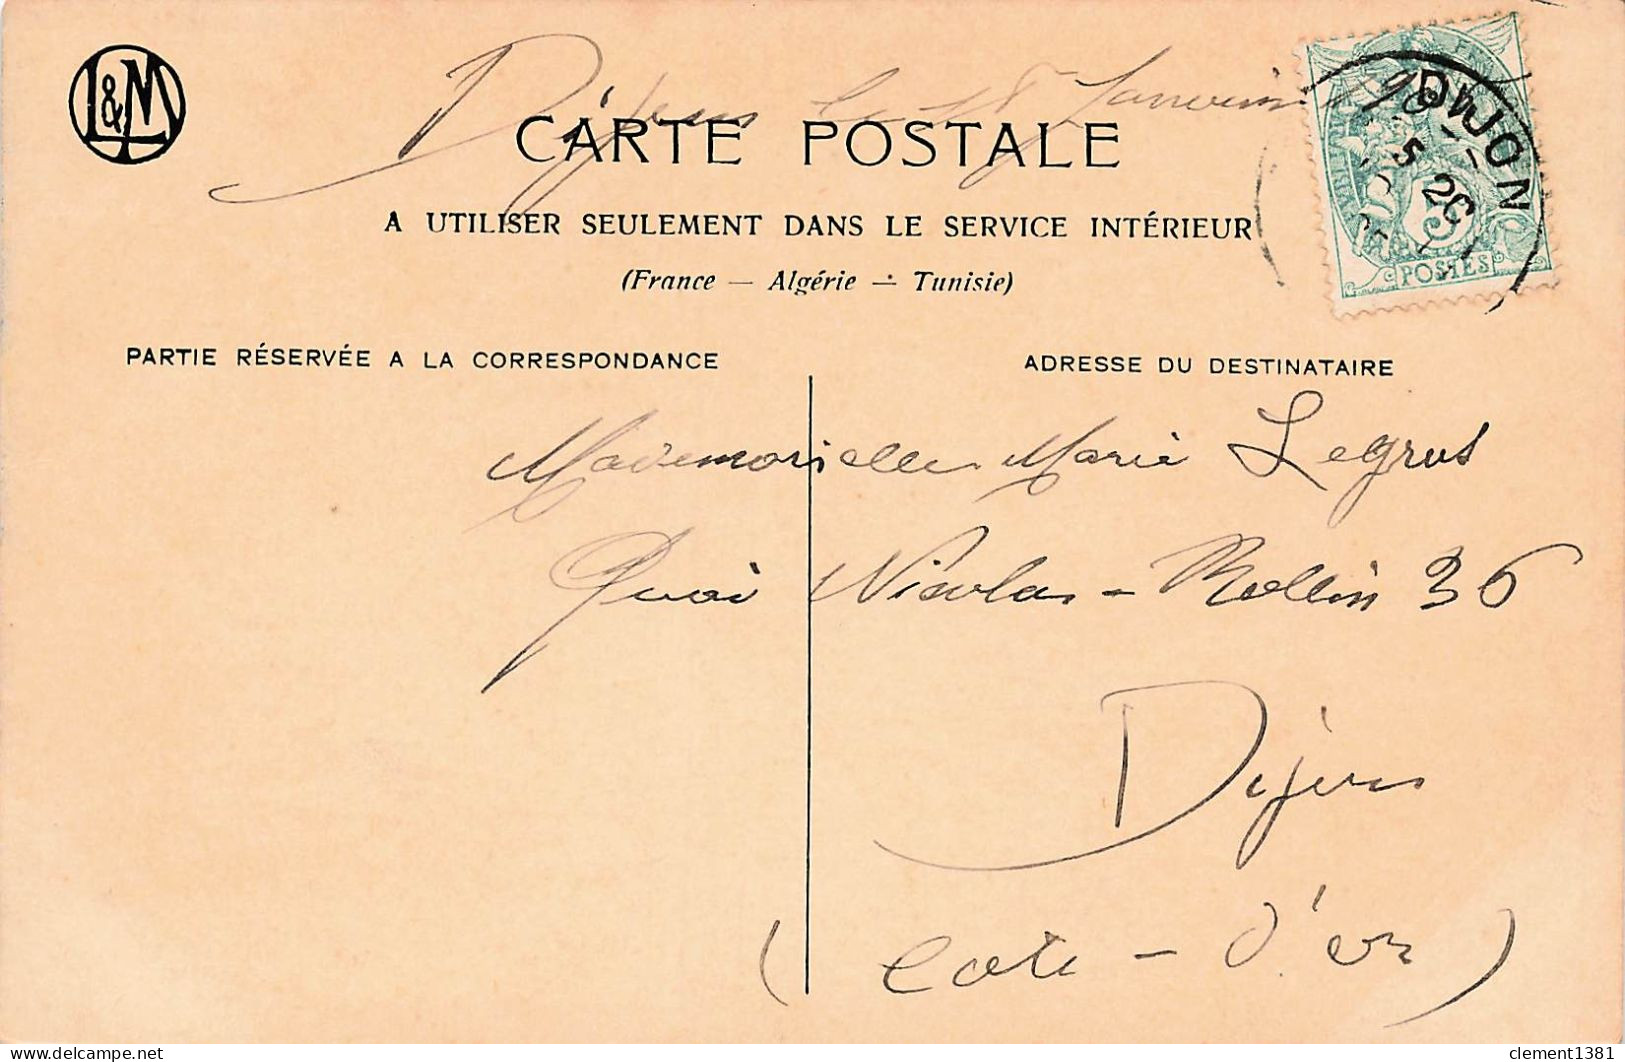 L&M
Dijon le 18 Janvier
CARTE POSTALE
A UTILISER SEULEMENT DANS LE SERVICE INTÉRIEUR
(France — Algérie — Tunisie)
DIJON
5
POSTES
PARTIE RÉSERVÉE A LA CORRESPONDANCE
ADRESSE DU DESTINATAIRE
Mademoiselle Marie Legrus
Quai Nicolas-Rollin 36
Dijon
(Cote-d'or)
delcampe.net
clement1381